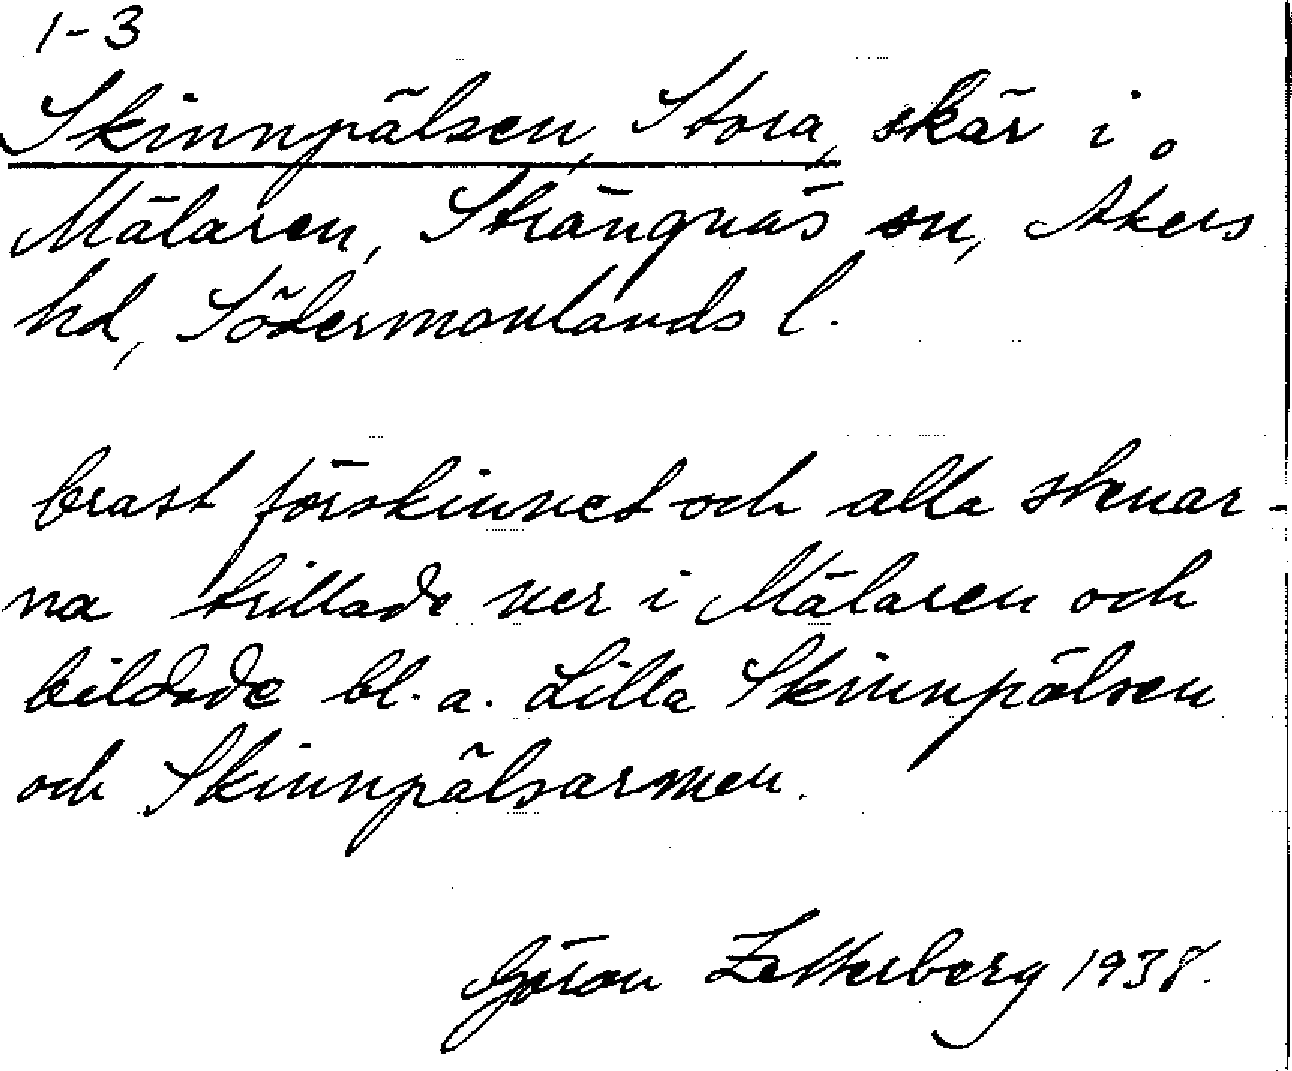 1-3
Skinnpälsen, Stora, skär i
Mälaren, Strängnäs sn, Åkers
hd, Södermanlands l.
brast förskinnet och alla stenar-
na trillade ner i Mälaren och
bildade bl. a. Lilla Skinnpälsen
och Skinnpälsarmen.
Göran Zetterberg 1938.